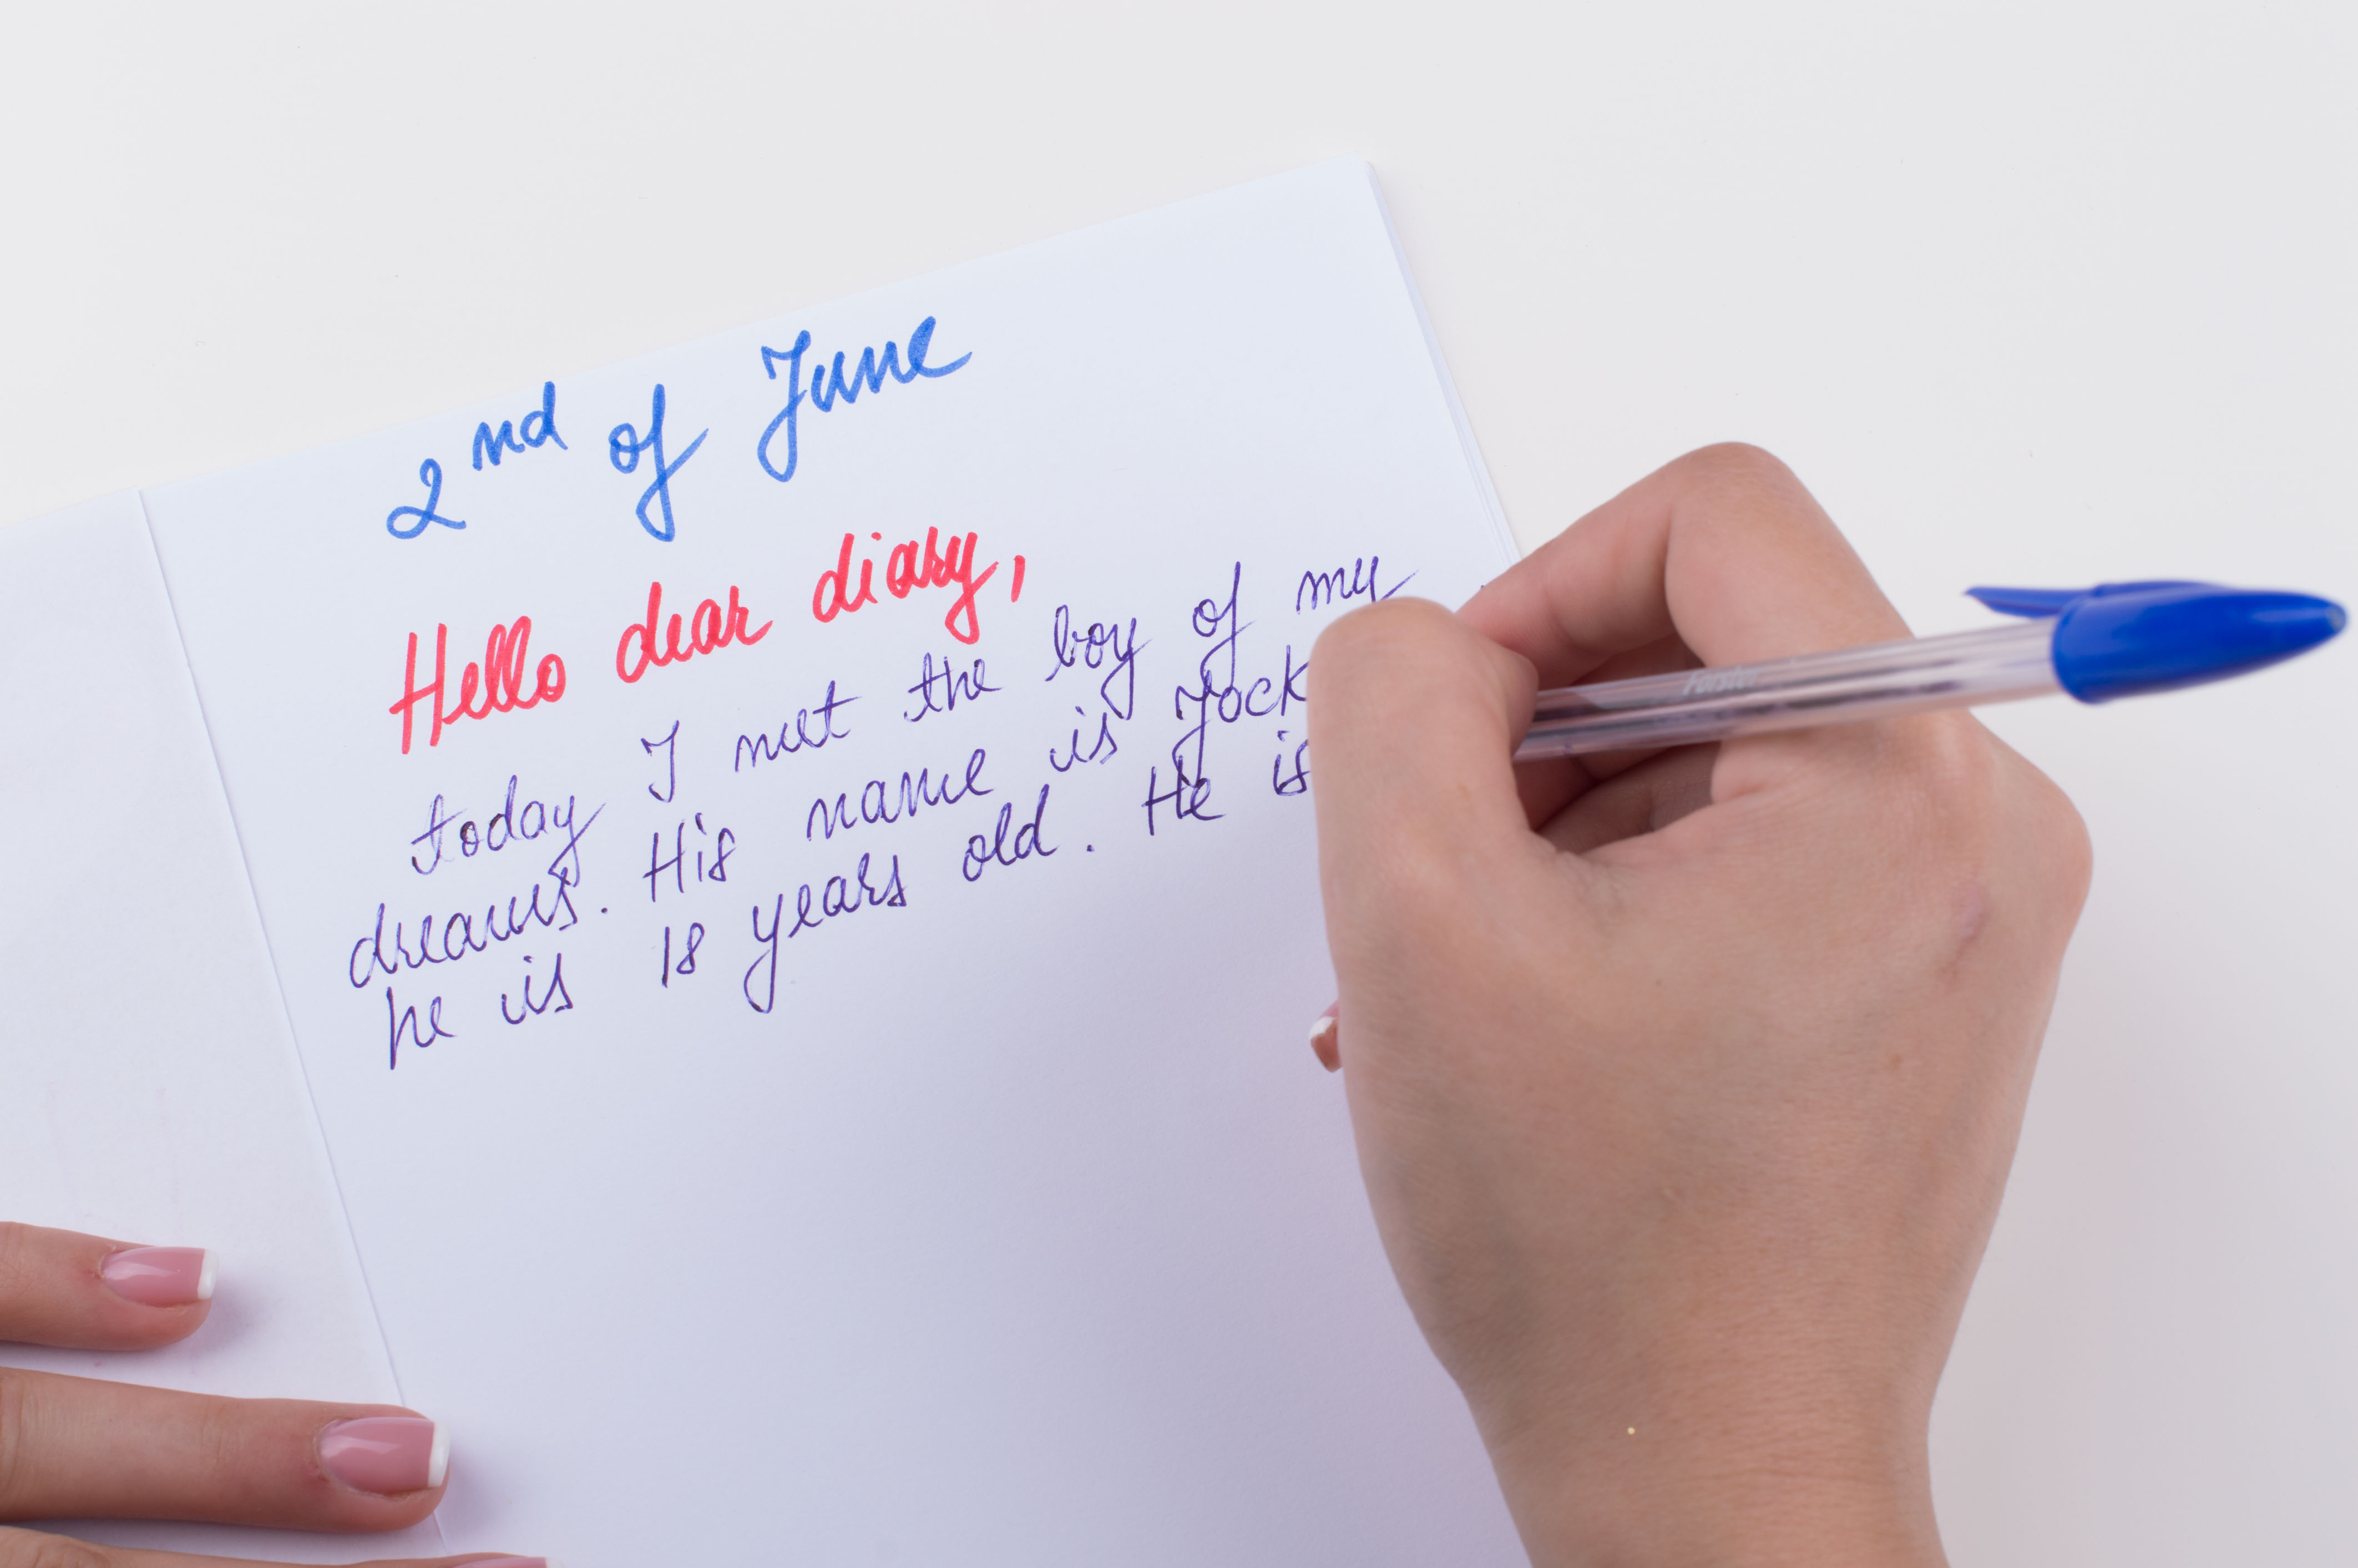 2nd of June
Hello dear diary,
today I met the boy of my
dreams. His name is Jock
he is 18 years old. He is